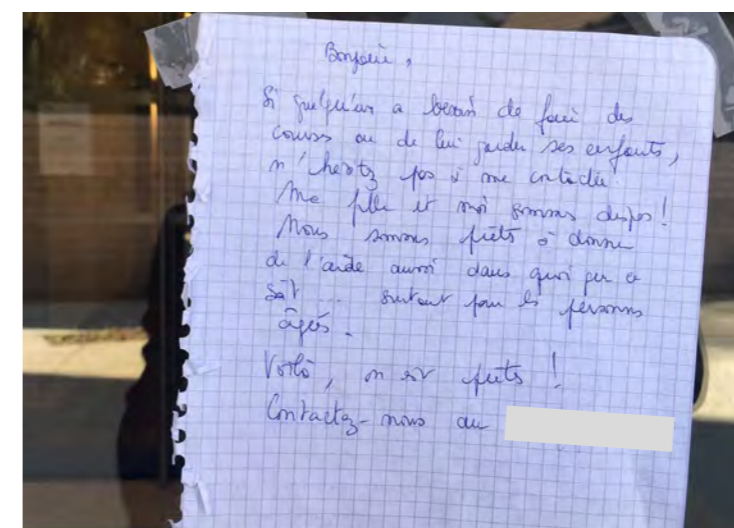 Bonjour,
Si quelqu'un a besoin de faire des
courses ou de lui garder ses enfants,
n'hesitez pas à me contacter
Ma fille et moi sommes dispos !
Nous sommes prêts à donner
de l'aide aussi dans quoi que ce
soit ... surtout pour les personnes
âgées.
Voilà, on est prêts !
Contactez-nous au